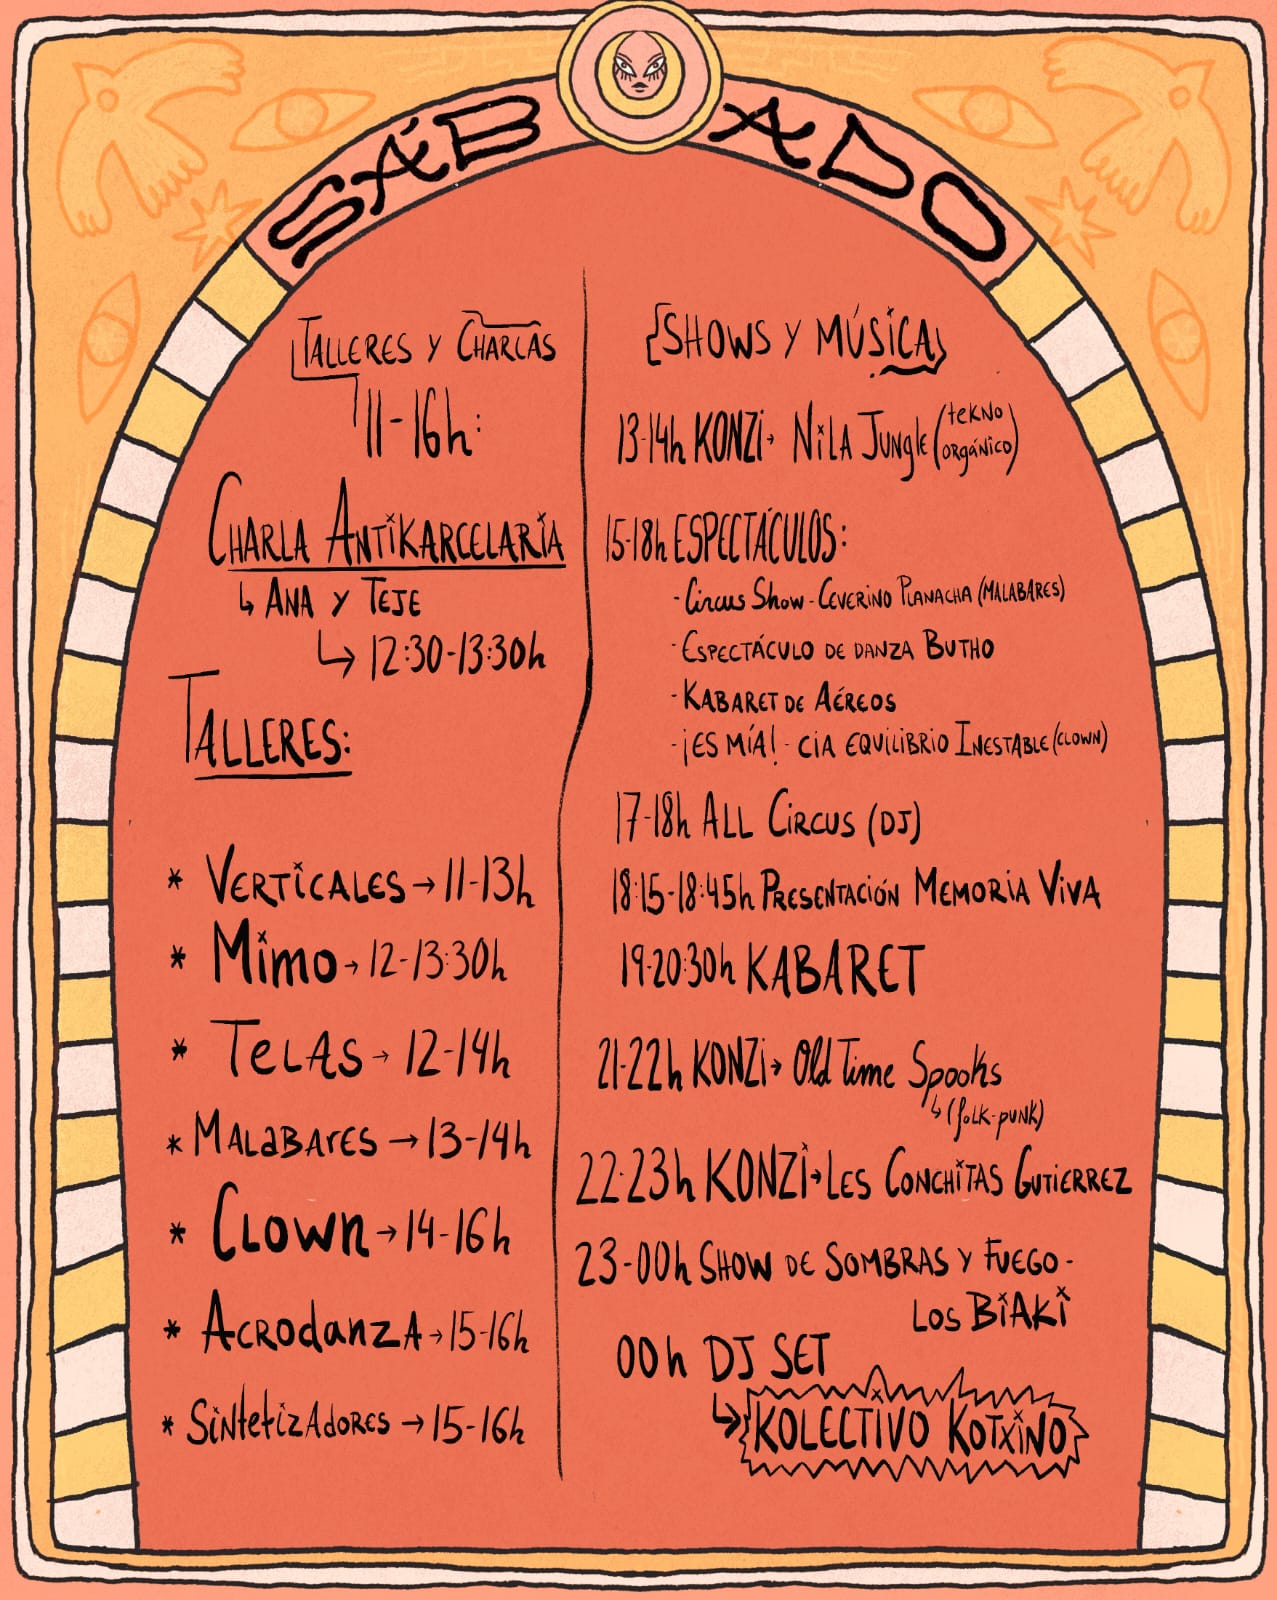 SÁBADO
TALLERES Y CHARLAS
11-16h:
CHARLA ANTIKARCELARIA
↳ ANA Y TEJE
↳ 12:30-13:30h
TALLERES:
* VERTICALES → 11-13h
* MIMO → 12-13:30h
* TELAS → 12-14h
* MALABARES → 13-14h
* CLOWN → 14-16h
* ACRODANZA → 15-16h
* SINTETIZADORES → 15-16h
{SHOWS Y MÚSICA}
13-14h KONZI → NILA JUNGLE (TEKNO ORGÁNICO)
15-18h ESPECTÁCULOS:
- CIRCUS SHOW - CEVERINO PLANACHA (MALABARES)
- ESPECTÁCULO DE DANZA BUTHO
- KABARET DE AÉREOS
- ¡ES MÍA! - CIA EQUILIBRIO INESTABLE (CLOWN)
17-18h ALL CIRCUS (DJ)
18:15-18:45h PRESENTACIÓN MEMORIA VIVA
19-20:30h KABARET
21-22h KONZI → Old Time Spooks
↳ (FOLK-PUNK)
22-23h KONZI → LES CONCHITAS GUTIERREZ
23-00h SHOW DE SOMBRAS Y FUEGO -
LOS BIAKI
00h DJ SET
↳ KOLECTIVO KOTXINO